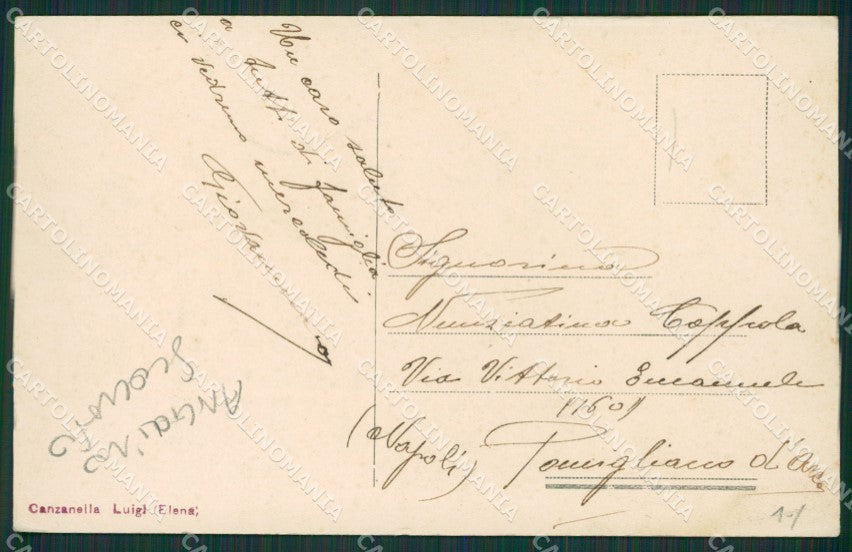 Un caro saluto
a tutti di famiglia
ci vedremo mercoledì
Giovannino
Signorina
Nunziatina Coppola
Via Vittorio Emanuele
(Napoli) Pomigliano d'Arco
Canzanella Luigi (Elena)
CARTOLINOMANIA